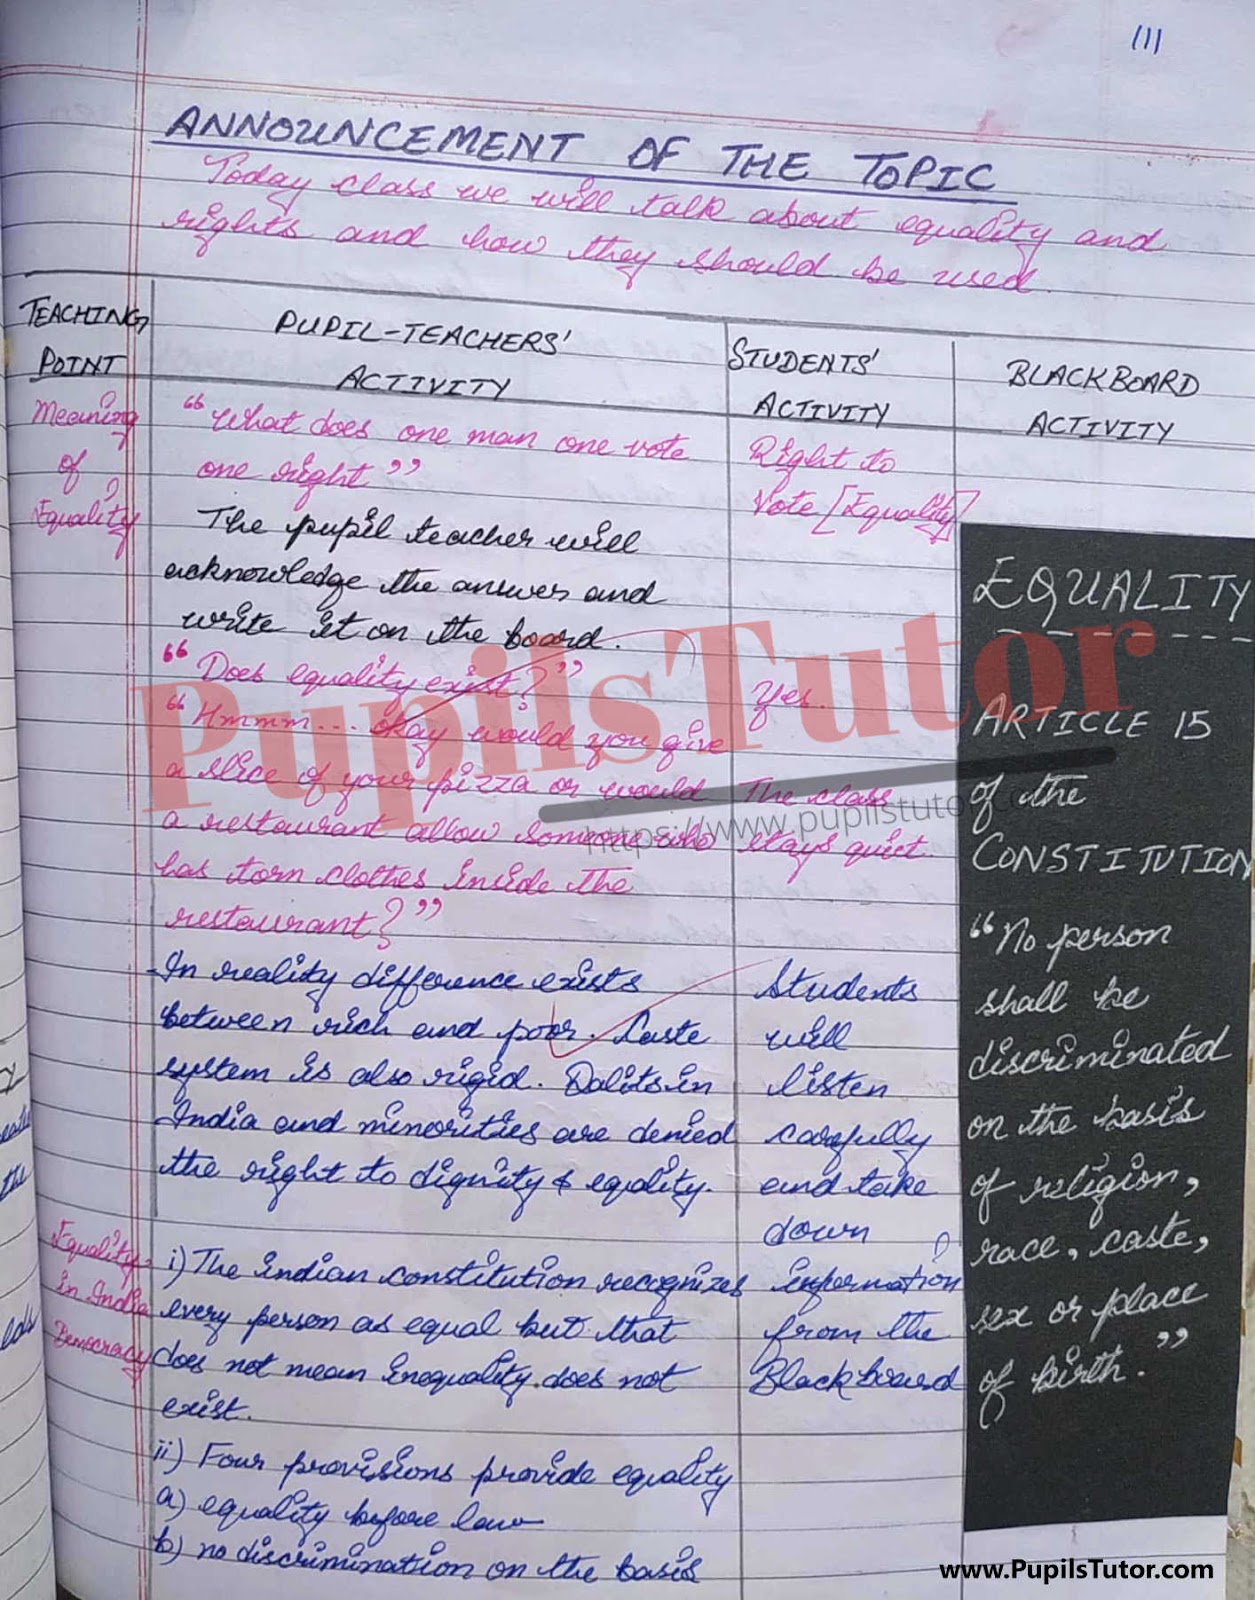 111
ANNOUNCEMENT OF THE TOPIC
Today class we will talk about equality and
rights and how they should be used.
TEACHING
POINT
PUPIL-TEACHERS'
ACTIVITY
STUDENTS'
ACTIVITY
BLACKBOARD
ACTIVITY
Meaning
of
Equality
"What does one man one vote
one right"
The pupil teacher will
acknowledge the answer and
write it on the board.
"Does equality exist?"
"Hmmm... okay would you give
a slice of your pizza or would
a restaurant allow someone who
has torn clothes inside the
restaurant?"
In reality difference exists
between rich and poor. Caste
system is also rigid. Dalits in
India and minorities are denied
the right to dignity & equality.
Right to
Vote [Equality]
Yes.
The class
stays quiet.
Students
will
listen
carefully
and take
down
information
from the
Blackboard
EQUALITY
ARTICLE 15
of the
CONSTITUTION
"No person
shall be
discriminated
on the basis
of religion,
race, caste,
sex or place
of birth."
Equality
in India
Democracy
i) The Indian constitution recognizes
every person as equal but that
does not mean inequality does not
exist.
ii) Four provisions provide equality
a) equality before law
b) no discrimination on the basis
PupilsTutor
https://www.pupilstutor.
www.PupilsTutor.com